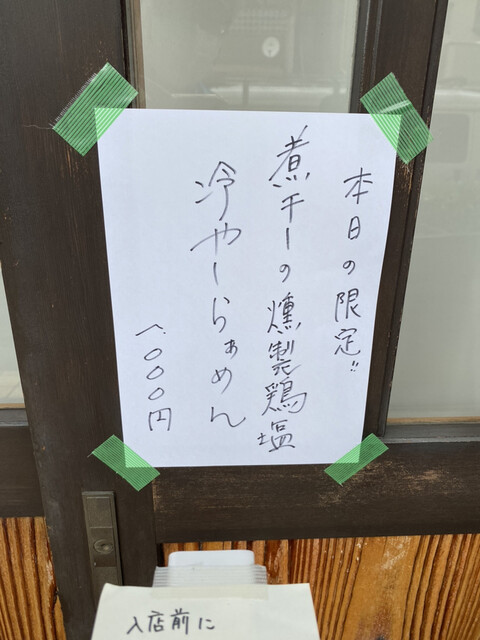 本日の限定!!
煮干しの燻製鶏塩
冷やしらぁめん
一、〇〇〇円
入店前に